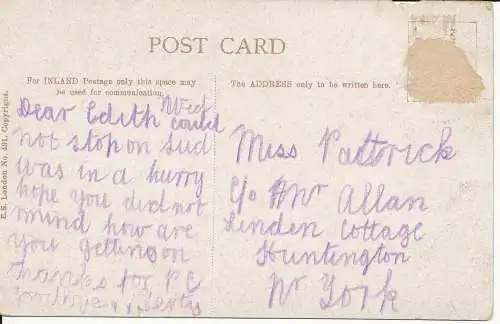 POST CARD
For INLAND Postage only this space may
be used for communication.
The ADDRESS only to be written here.
E.S. London No. 491. Copyright.
Dear Edith
could
not stop on Sud
was in a hurry
hope you did not
mind how are
you getting on
thanks for P C
goodbye x x
Miss Pattrick
c/o Mr Allan
Linden Cottage
Huntington
Nr York